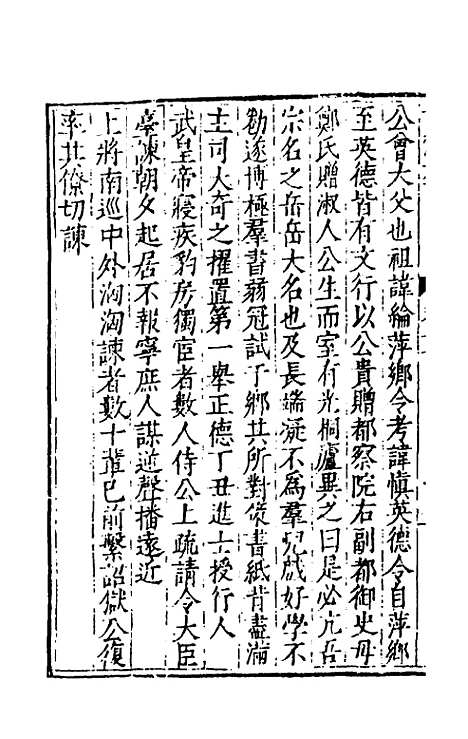 公曾大父也祖諱綸萍鄉令考諱慎英德令自萍鄉
至英德皆有文行以公貴贈都察院右副都御史母
鄭氏贈淑人公生而室有光桐廬異之曰是必亢吾
宗名之岳岳大名也及長端凝不為羣兒戲好學不
勌遂博極羣書弱冠試于鄉其所對策書紙背盡滿
主司大奇之擢置第一舉正德丁丑進士授行人
武皇帝寢疾豹房獨宦者數人侍公上疏請令大臣
臺諫朝夕起居不報寧庶人謀逆聲播遠近
上將南巡中外洶洶諫者數十輩已前繫詔獄公復
率其僚切諫